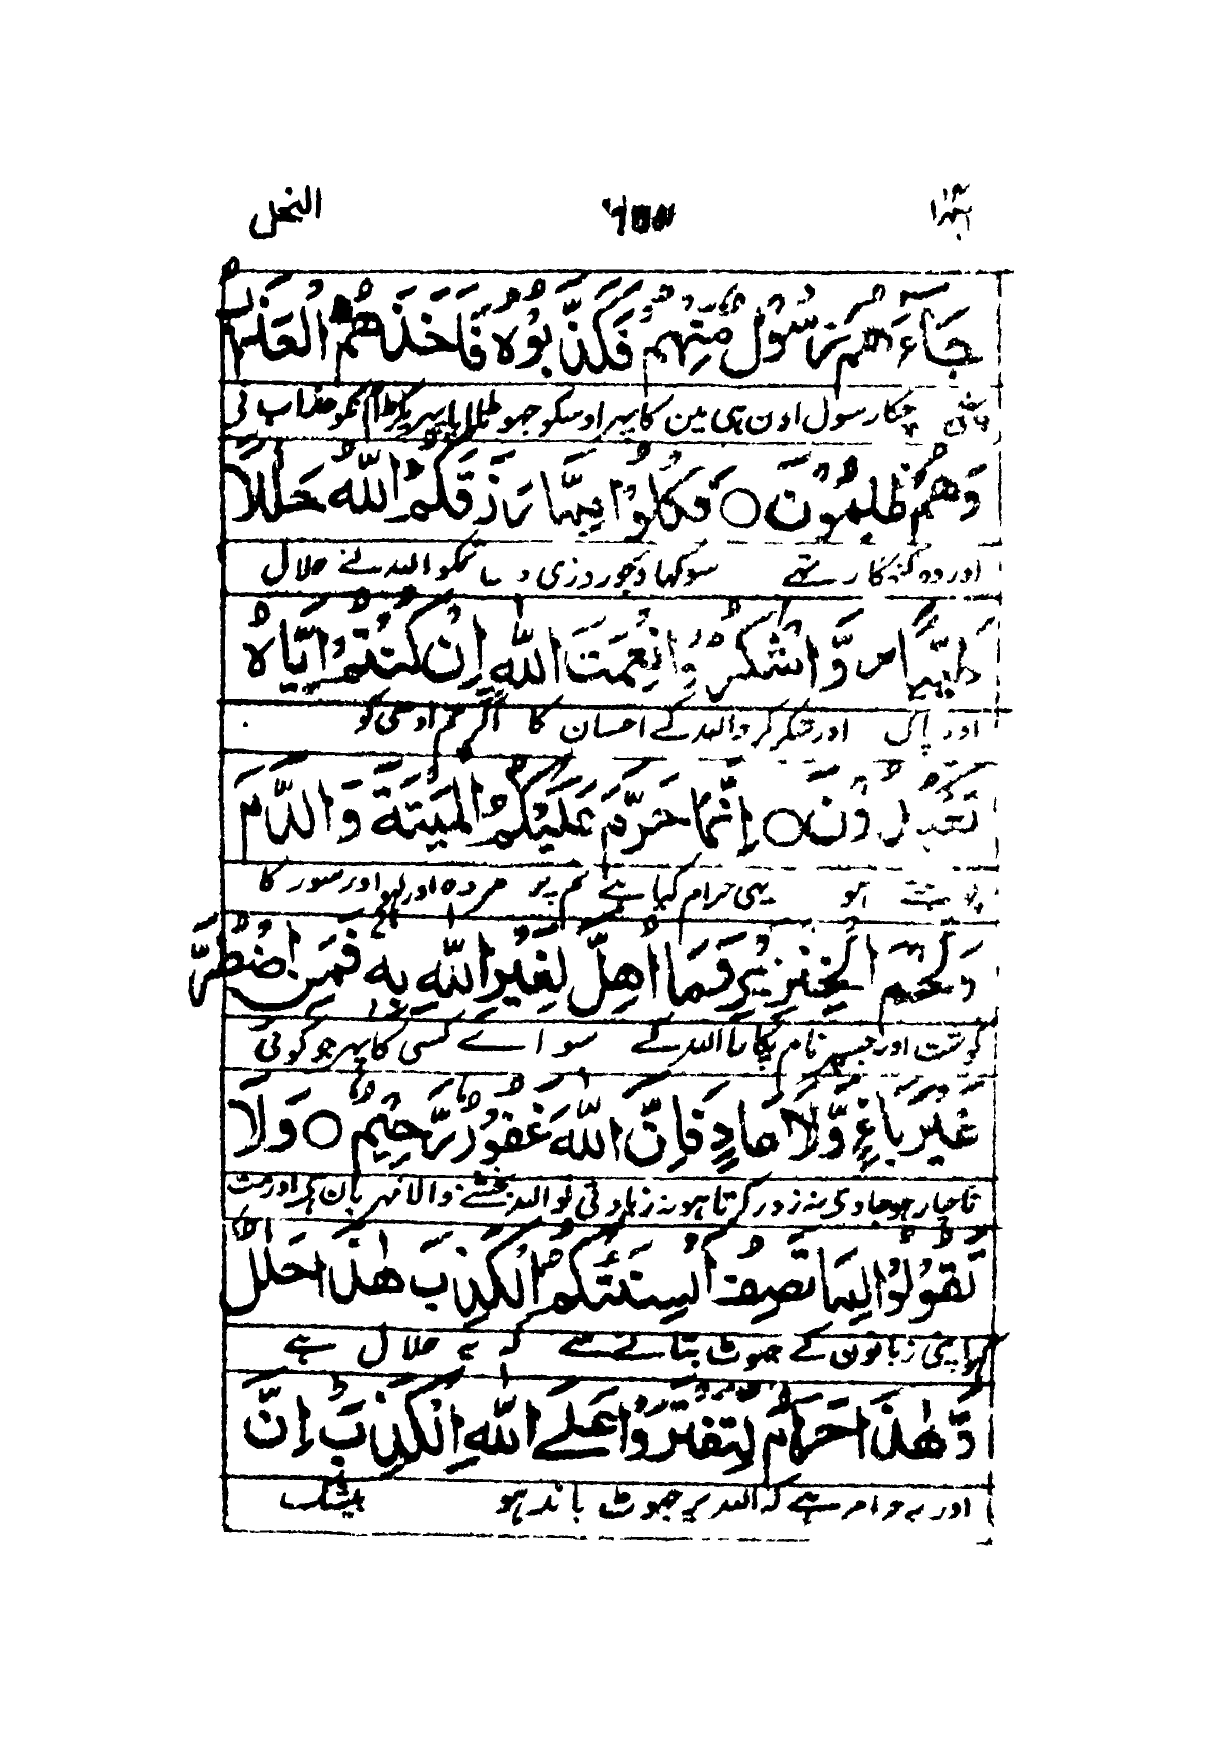 النحل
جَاءَهُمْ رَسُوْلٌ مِّنْهُمْ فَكَذَّبُوْهُ فَاَخَذَهُمُ الْعَذَابُ
چکا رسول اون ہی مین کا پہر اوسکو جھوٹلایا پہر پکڑا نکو عذاب نی
وَهُمْ ظٰلِمُوْنَ ○ فَكُلُوْا مِمَّا رَزَقَكُمُ اللّٰهُ حَلٰلًا
اور وہ گنہگار تھے سو کھاو جو روزی دی تمکو اللہ نے حلال
طَيِّبًا وَّاشْكُرُوْا نِعْمَتَ اللّٰهِ اِنْ كُنْتُمْ اِيَّاهُ
اور پاک اور شکر کرو اللہ کے احسان کا اگر تم اوسی کو
تَعْبُدُوْنَ ○ اِنَّمَا حَرَّمَ عَلَيْكُمُ الْمَيْتَةَ وَالدَّمَ
ہو یہی حرام کیا ہے تم پر مردہ اور لہو اور سور کا
وَلَحْمَ الْخِنْزِيْرِ وَمَا اُهِلَّ لِغَيْرِ اللّٰهِ بِهٖ فَمَنِ اضْطُرَّ
گوشت اور جسپر نام پکارا اللہ کے سواے کسی کا پہر جو کوئی
غَيْرَ بَاغٍ وَّلَا عَادٍ فَاِنَّ اللّٰهَ غَفُوْرٌ رَّحِيْمٌ ○ وَلَا
ناچار ہو جاوی نہ زور کرتا ہو نہ زیادتی تو اللہ بخشنے والا مہربان ہی اور مت
تَقُوْلُوْا لِمَا تَصِفُ اَلْسِنَتُكُمُ الْكَذِبَ هٰذَا حَلٰلٌ
کہو اپنی زبانون کے جھوٹ بتانے سے کہ یہ حلال ہے
وَّهٰذَا حَرَامٌ لِّتَفْتَرُوْا عَلَى اللّٰهِ الْكَذِبَ اِنَّ
اور یہ حرام ہے کہ اللہ پر جھوٹ باندہو بیشک